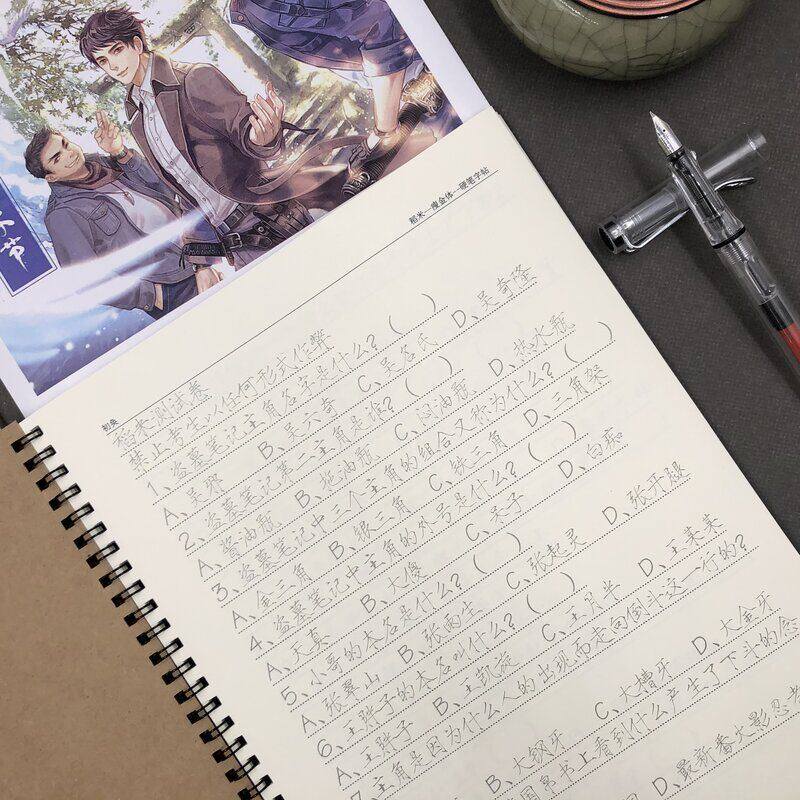 水节
稻米—瘦金体—硬笔字帖
初奂
稻米测试卷
禁止考生以任何形式作弊
1、盗墓笔记主角名字是什么？（ ）
A、吴邪 B、吴六奇 C、吴名氏 D、吴奇隆
2、盗墓笔记第二主角是谁？（ ）
A、酱油瓶 B、拖油瓶 C、闷油瓶 D、热水瓶
3、盗墓笔记中三个主角的组合又称为什么？（ ）
A、金三角 B、银三角 C、铁三角 D、三角架
4、盗墓笔记中主角的外号是什么？（ ）
A、天真 B、大傻 C、呆子 D、白痴
5、小哥的本名是什么？（ ）
A、张翠山 B、张雨生 C、张起灵 D、张开腿
6、王胖子的本名叫什么？（ ）
A、王胖子 B、王凯旋 C、王月半 D、王美美
7、主角是因为什么人的出现而走向倒斗这一行的？
B、大钢牙 C、大槽牙 D、大金牙
国帛书上看到什么产生了下斗的念
D、最新番火影忍者